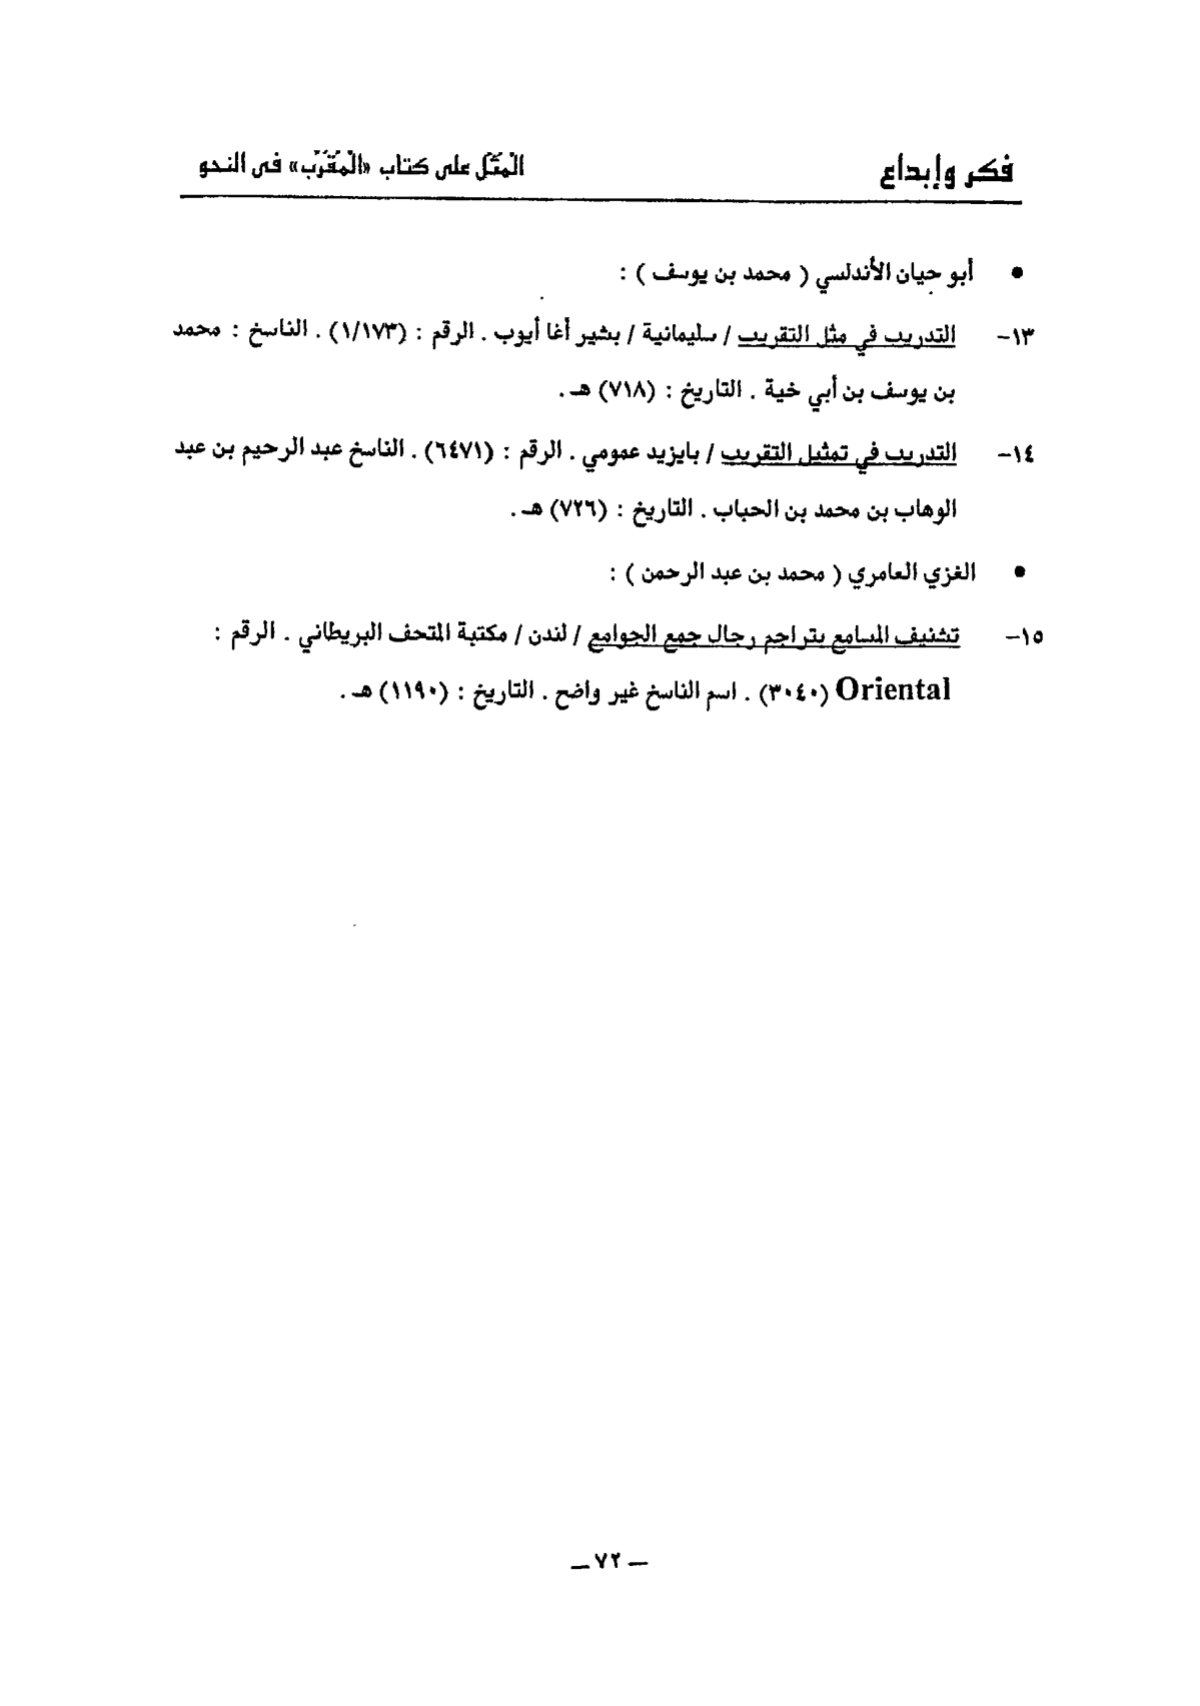 فكر وإبداع
المُثُل على كتاب «المُقَرِّب» فى النحو
• أبو حيان الأندلسي ( محمد بن يوسف ) :
١٣- التدريب في مثل التقريب / سليمانية / بشير أغا أيوب . الرقم : (١/١٧٣) . الناسخ : محمد
بن يوسف بن أبي خية . التاريخ : (٧١٨) هـ .
١٤- التدريب في تمثيل التقريب / بايزيد عمومي . الرقم : (٦٤٧١) . الناسخ عبد الرحيم بن عبد
الوهاب بن محمد بن الحباب . التاريخ : (٧٢٦) هـ .
• الغزي العامري ( محمد بن عبد الرحمن ) :
١٥- تشنيف المسامع بتراجم رجال جمع الجوامع / لندن / مكتبة المتحف البريطاني . الرقم :
Oriental (٣٠٤٠) . اسم الناسخ غير واضح . التاريخ : (١١٩٠) هـ .
– ٧٢ –